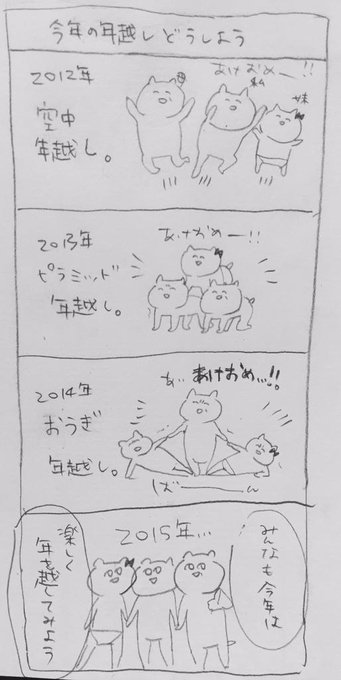 今年の年越しどうしよう
2012年
空中
年越し。
あけおめー!!
私
妹
2013年
ピラミッド
年越し。
あけおめー!!
2014年
おうぎ
年越し。
あ… あけおめ…!!
ばーーん
2015年…
みんなも今年は
楽しく
年を越してみよう